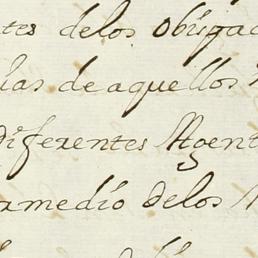 tes delos obligac
ias de aquellos
diferentes Agent
rmedio delos